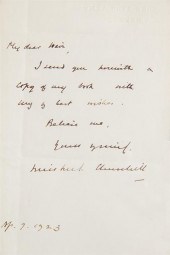 My dear Weir,
I send you herewith a
copy of my book with
my best wishes.
Believe me,
Yours sincerely,
Winston S. Churchill
Ap. 9. 1923